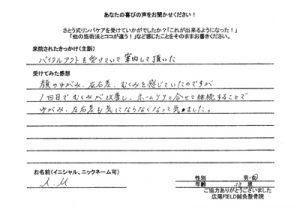 あなたの喜びの声をお聞かせください！
さとう式リンパケアを受けていかがでしたか？「これが出来るようになった！」
「他の施術法とココが違う！」など感じたことをそのままお書きください。
来院されたきっかけ（主訴）
バイタルリアクトを受けていて案内して頂いた
受けてみた感想
顔のゆがみ、左右差、むくみを感じていたのですが
1回目でむくみが改善し、ホームケアと合せて継続することで
ゆがみ、左右差も気にならなくなって来ました。
お名前（イニシャル、ニックネーム可）
性別 男・
年齢 歳
ご協力ありがとうございました
広陽FIELD鍼灸整骨院